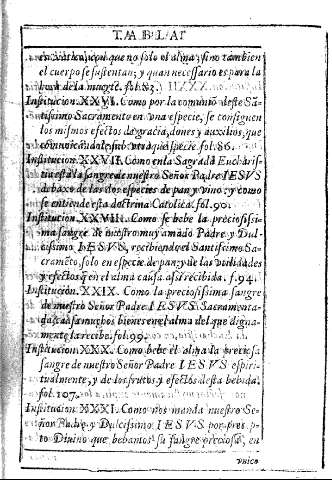 TABLA
con que no solo el alma, sino tambien
el cuerpo se sustentan; y quan necessario es para la
hora de la muerte. fol. 83.
Institucion. XXVI. Como por la comunió deste Sã-
tissimo Sacramento en vna especie, se consiguen
los mismos efectos de gracia, dones y auxilios, que
comunicandole sub vtraque specie. fol. 86.
Institucion. XXVII. Como en la Sagrada Eucharis-
tia está la sangre de nuestro Señor Padre IESVS
debaxo de las dos especies de pan y vino; y como
se entiende esta doctrina Catolica. fol. 90.
Institucion. XXVIII. Como se bebe la preciosissi-
ma sangre de nuestro muy amado Padre y Dul-
cissimo IESVS, recibiendo el Santissimo Sa-
cramẽto, solo en especie de pan; y de las vtilidades
y efectos q̃ en el alma causa assi recibida. f. 94.
Institucion. XXIX. Como la preciosissima sangre
de nuestro Señor Padre IESVS Sacramenta-
da, causa muchos bienes en el alma del que digna-
mente la recibe. fol. 99.
Institucion. XXX. Como bebe el alma la preciosa
sangre de nuestro Señor Padre IESVS espiri-
tualmente, y de los frutos y efectos desta bebida.
fol. 107.
Institucion. XXXI. Como nos manda nuestro Se-
ñor Padre y Dulcissimo IESVS por precep-
to Divino que bebamos su sangre preciosa, en
vnico